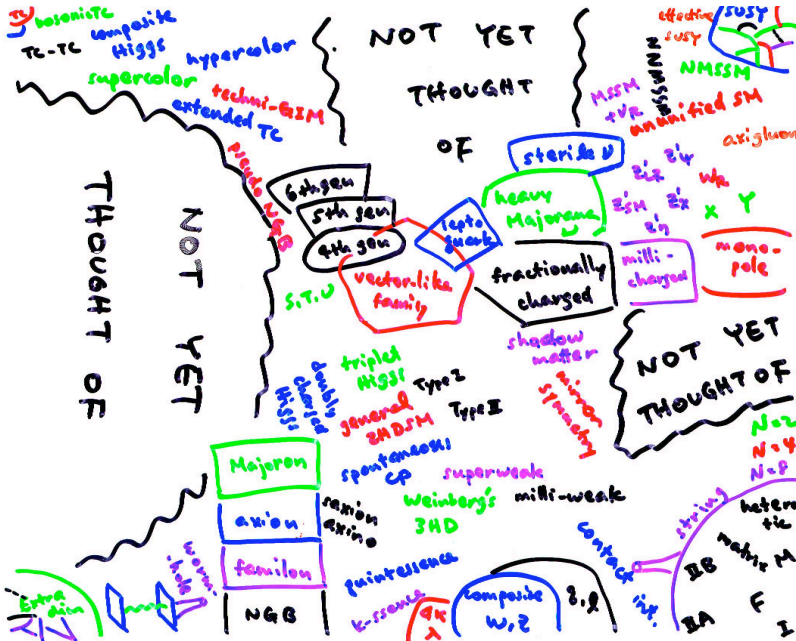 TC
bosonic TC
TC-TC
composite
Higgs
hypercolor
supercolor
techni-GIM
extended TC
pseudo NGB
NOT YET
THOUGHT
OF
effective
SUSY
SUSY
NMSSM
NNMSSM
MSSM
+νR
ununified SM
axigluon
sterile ν
heavy
Majorana
ν
Z'LR
Z'ψ
Z'SM
Z'χ
Z'η
WR
X Y
6th gen
5th gen
4th gen
lepto
quark
vector-like
family
fractionally
charged
milli-
charged
mono-
pole
S.T.U
NOT YET
THOUGHT OF
shadow
matter
mirror
symmetry
NOT YET
THOUGHT OF
triplet
Higgs
doubly
charged
Higgs
general
2HDSM
Type I
Type II
spontaneous
CP
superweak
Weinberg's
3HD
milli-weak
Majoron
axion
saxion
axino
familon
NGB
quintessence
k-ssence
worm
-hole
Extra
dim
composite
W,Z
q,l
contact
int.
string
N=2
N=4
N=8
hetero
tic
matrix
M
IIB
IIA
F
I